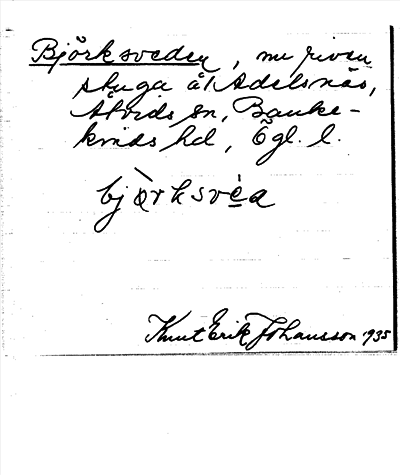 Björksveden, nu riven
stuga å Adelsnäs,
Åtvids sn, Banke-
kinds hd, Ögl. l.
bjö̀rksvèa
Knut Erik Johansson 1935